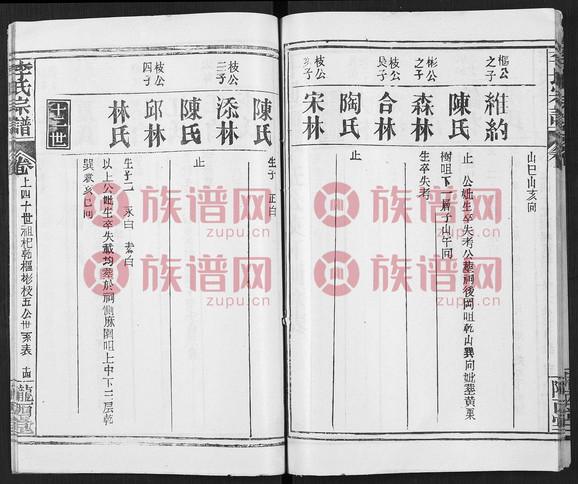 山巳山亥向
樞公之子
維約
陳氏
止 公妣生卒失考公塟祠後岡咀乾山巽向妣塟黄栗
樹咀下一穉子山午向
彬公之子
森林
生卒失考
枝公長子
合林
陶氏
止
宋林
止
枝公三子
添林
陳氏
生子 正白
陳氏
止
枝公四子
邱林
林氏
生子二 永白 素白
以上公妣生卒失載均塟於祠側麻園咀上中下三層乾
巽兼亥巳向
十三世
李氏宗譜
卷上四
十世祖杞乾樞彬枝五公世系表
隴西堂
隴西堂
族谱网
zupu.cn
族谱网
zupu.cn
族谱网
zupu.cn
族谱网
zupu.cn